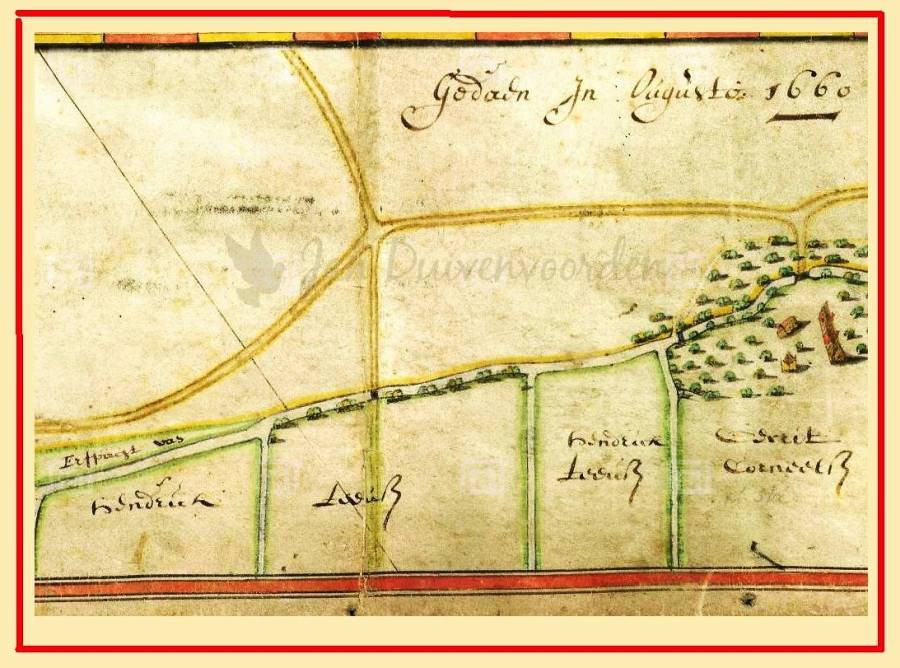 Gedaen In Augusto 1660
Jan Duivenvoorden
Erfpacht van
Hendrick Leeuß
Hendrick
Leeuß
Gerrit
Corneelß